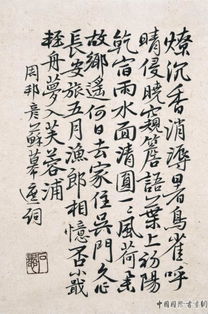 燎沉香消溽暑鳥雀呼
晴侵曉窺簷語葉上初陽
乾宿雨水面清圓一一風荷舉
故鄉遙何日去家住吴門久作
長安旅五月漁郎相憶否小檝
輕舟夢入芙蓉浦
周邦彦蘇幕遮詞